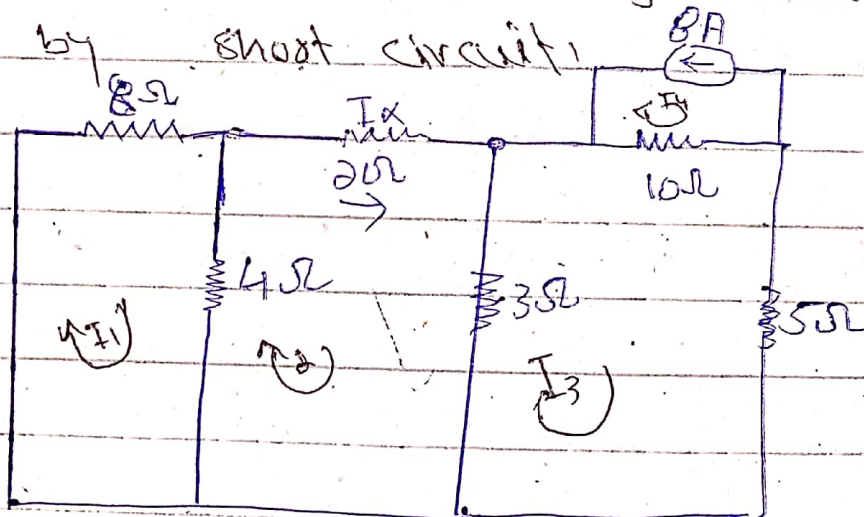 by short circuit,
8A
8Ω
Ix
I4
20Ω
10Ω
4Ω
3Ω
5Ω
I1
I2
I3